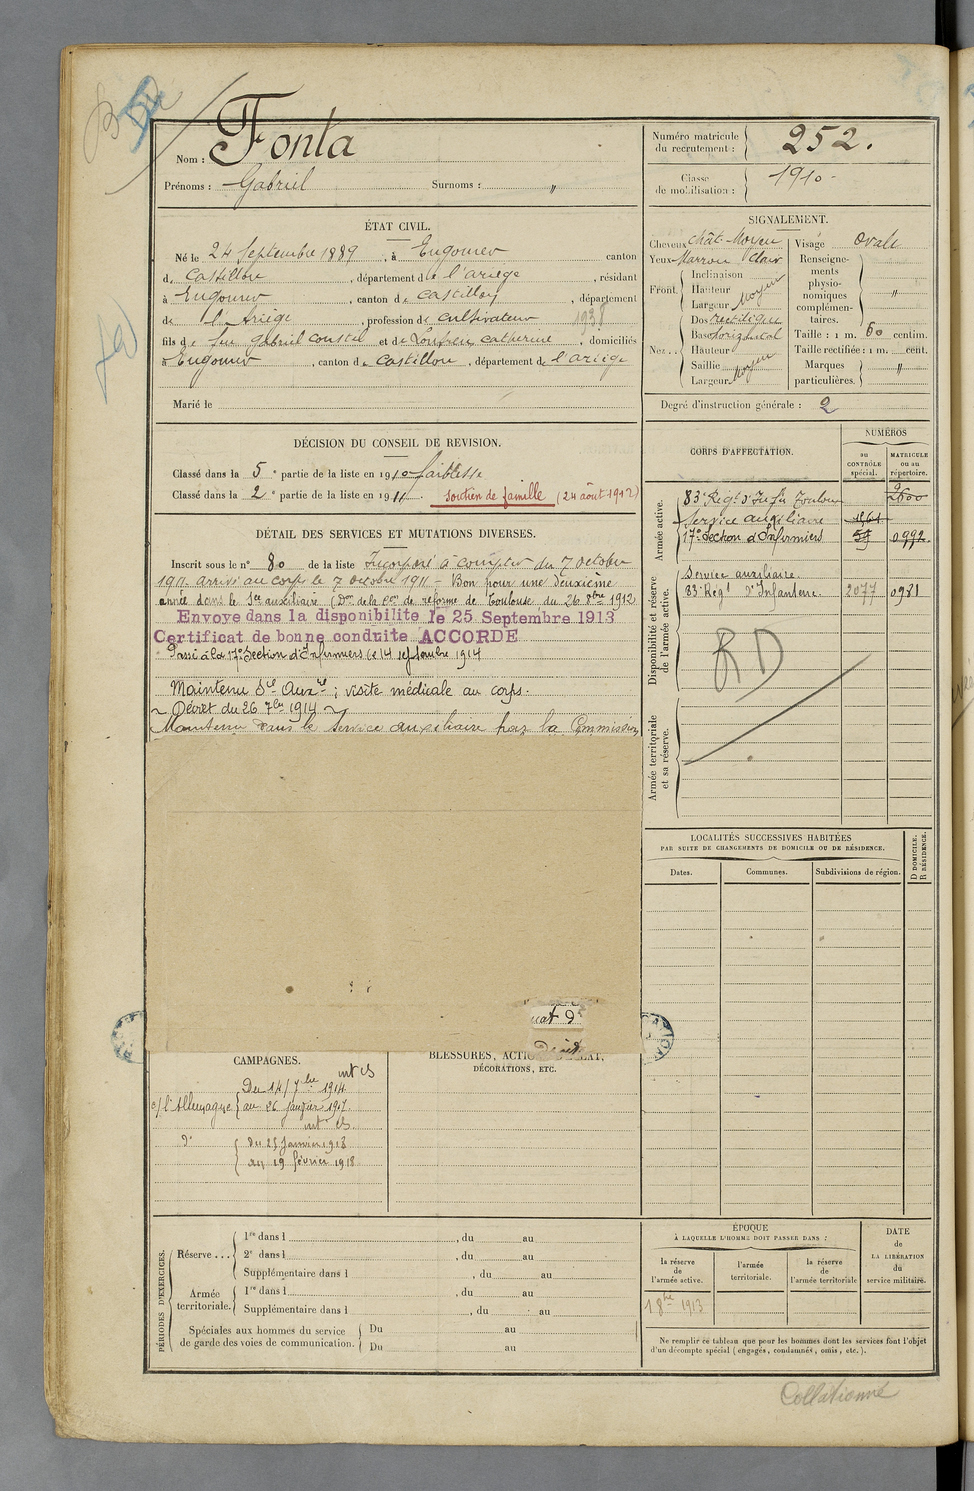 Fonta
Nom :
Prénoms : Gabriel Surnoms : "
Numéro matricule du recrutement : 252.
Classe de mobilisation : 1910
ÉTAT CIVIL.
Né le 24 Septembre 1889, à Engomer canton
de Castillon, département de l'ariège, résidant
à Engomer, canton de Castillon, département
de l'Ariège, profession de cultivateur 1938
fils de feu Gabriel et de Catherine, domiciliés
à Engomer, canton de Castillon, département de l'ariège
Marié le
SIGNALEMENT.
Cheveux chât. Moyen
Yeux Marron clair
Front. Inclinaison
Hauteur
Largeur Moyen
Nez.. Dos rectiligne
Base horizontal
Hauteur
Saillie
Largeur Moyen
Visage ovale
Renseignements physionomiques complémentaires. "
Taille : 1 m. 60 centim.
Taille rectifiée : 1 m. cent.
Marques particulières. "
Degré d'instruction générale : 2
DÉCISION DU CONSEIL DE REVISION.
Classé dans la 5e partie de la liste en 1910 faiblesse
Classé dans la 2e partie de la liste en 1911. soutien de famille (24 août 1912)
DÉTAIL DES SERVICES ET MUTATIONS DIVERSES.
Inscrit sous le n° 80 de la liste Incorporé à compter du 7 octobre
1911. arrivé au corps le 7 octobre 1911 - Bon pour une deuxième
année dans le Sce auxiliaire (Don de la Con de réforme de Toulouse du 26 8bre 1912
Envoye dans la disponibilite le 25 Septembre 1913
Certificat de bonne conduite ACCORDE
Passé à la 17e Section d'Infirmiers le 14 septembre 1914
Maintenu Sce Auxre ; visite médicale au corps.
Décret du 26 7bre 1914
Maintenu dans le service auxiliaire par la Commission
CORPS D'AFFECTATION.
NUMÉROS
au CONTRÔLE spécial.
MATRICULE ou au répertoire.
Armée active.
83e Régt d'Infie Toulouse
Service auxiliaire
17e Section d'Infirmiers 0992
Disponibilité et réserve de l'armée active.
Service auxiliaire.
83e Régt d'Infanterie 2077 0981
RD
Armée territoriale et sa réserve.
LOCALITÉS SUCCESSIVES HABITÉES
PAR SUITE DE CHANGEMENTS DE DOMICILE OU DE RÉSIDENCE.
Dates.
Communes.
Subdivisions de région.
D DOMICILE.
R RÉSIDENCE.
CAMPAGNES.
int CS
c/ l'Allemagne Du 14 7bre 1914
au 26 janvier 1917.
int CS.
do du 25 Janvier 1918
au 19 février 1918
DÉCORATIONS, ETC.
PÉRIODES D'EXERCICES.
Réserve ... 1re dans l , du au
2e dans l , du au
Supplémentaire dans l , du au
Armée territoriale. 1re dans l , du au
Supplémentaire dans l , du au
Spéciales aux hommes du service de garde des voies de communication. Du au
Du au
ÉPOQUE
À LAQUELLE L'HOMME DOIT PASSER DANS :
la réserve de l'armée active.
l'armée territoriale.
la réserve de l'armée territoriale
DATE de LA LIBÉRATION du service militaire.
1 8bre 1913
Ne remplir ce tableau que pour les hommes dont les services font l'objet
d'un décompte spécial (engagés, condamnés, omis, etc.).
Collationné